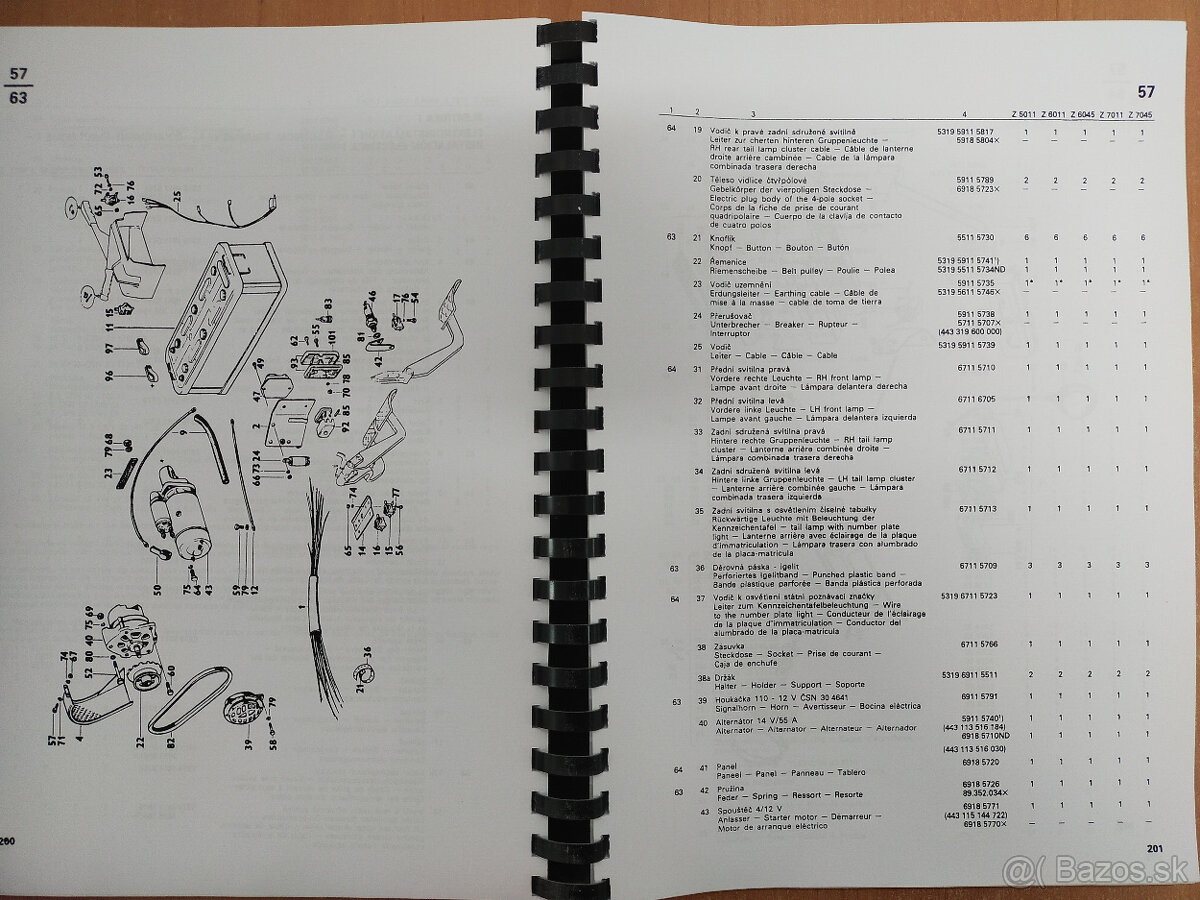 57
63
53
72
76
65
16
25
15
11
97
96
83
55
62
101
93
85
49
47
78
70
2
92
85
24
73
66
46
17
76
54
81
42
68
79
23
9
50
75
64
43
59
79
12
74
77
65
14
16
15
56
1
36
21
69
75
40
80
74
67
52
60
57
71
4
22
82
39
79
58
200
57
1 2 3 4 Z 5011 Z 6011 Z 6045 Z 7011 Z 7045
64 19 Vodič k pravé zadní sdružené svítilně 5319 5911 5817 1 1 1 1 1
Leiter zur cherten hinteren Gruppenleuchte — 5918 5804× — — — — —
RH rear tail lamp cluster cable — Câble de lanterne
droite arrière cambinée — Cable de la lámpara
combinada trasera derecha
20 Těleso vidlice čtyřpólové 5911 5789 2 2 2 2 2
Gebelkörper der vierpoligen Steckdose — 6918 5723× — — — — —
Electric plug body of the 4-pole socket —
Corps de la fiche de prise de courant
quadripolaire — Cuerpo de la clavija de contacto
de cuatro polos
63 21 Knoflík 5511 5730 6 6 6 6 6
Knopf — Button — Bouton — Butón
22 Řemenice 5319 5911 5741¹) 1 1 1 1 1
Riemenscheibe — Belt pulley — Poulie — Polea 5319 5511 5734ND 1 1 1 1 1
23 Vodič uzemnění 5911 5735 1* 1* 1* 1* 1*
Erdungsleiter — Earthing cable — Câble de 5319 5611 5746× — — — — —
mise à la masse — cable de toma de tierra
24 Přerušovač 5911 5738 1 1 1 1 1
Unterbrecher — Breaker — Rupteur — 5711 5707× — — — — —
Interruptor (443 319 600 000)
25 Vodič 5319 5911 5739 1 1 1 1 1
Leiter — Cable — Câble — Cable
64 31 Přední svítilna pravá 6711 5710 1 1 1 1 1
Vordere rechte Leuchte — RH front lamp —
Lampe avant droite — Lámpara delantera derecha
32 Přední svítilna levá 6711 6705 1 1 1 1 1
Vordere linke Leuchte — LH front lamp —
Lampe avant gauche — Lámpara delantera izquierda
33 Zadní sdružená svítilna pravá 6711 5711 1 1 1 1 1
Hintere rechte Gruppenleuchte — RH tail lamp
cluster — Lanterne arrière combinée droite —
Lámpara combinada trasera derecha
34 Zadní sdružená svítilna levá 6711 5712 1 1 1 1 1
Hintere linke Gruppenleuchte — LH tail lamp cluster
— Lanterne arrière combinée gauche — Lámpara
combinada trasera izquierda
35 Zadní svítilna s osvětlením číselné tabulky 6711 5713 1 1 1 1 1
Rückwärtige Leuchte mit Beleuchtung der
Kennzeichentafel — tail lamp with number plate
light — Lanterne arrière avec éclairage de la plaque
d'immatriculation — Lámpara trasera con alumbrado
de la placa-matricula
63 36 Děrovná páska - igelit 6711 5709 3 3 3 3 3
Perforiertes Igelitband — Punched plastic band —
Bande plastique parforée — Banda plástica perforada
64 37 Vodič k osvětlení státní poznávací značky 5319 6711 5723 1 1 1 1 1
Leiter zum Kennzeichentafelbeleuchtung — Wire
to the number plate light — Conducteur de l'éclairage
de la plaque d'immatriculation — Conductor del
alumbrado de la placa-matricula
38 Zásuvka 6711 5766 1 1 1 1 1
Steckdose — Socket — Prise de courant —
Caja de enchufe
38a Držák 5319 6911 5511 2 2 2 2 2
Halter — Holder — Support — Soporte
63 39 Houkačka 110 - 12 V ČSN 30 4641 6911 5791 1 1 1 1 1
Signalhorn — Horn — Avertisseur — Bocina eléctrica
40 Alternátor 14 V/55 A 5911 5740¹) 1 1 1 1 1
Alternator — Alternator — Alternateur — Alternador (443 113 516 184)
6918 5710ND 1 1 1 1 1
(443 113 516 030)
64 41 Panel 6918 5720 1 1 1 1 1
Paneel — Panel — Panneau — Tablero
63 42 Pružina 6918 5726 1 1 1 1 1
Feder — Spring — Ressort — Resorte 89.352.034× — — — — —
43 Spouštěč 4/12 V 6918 5771 1 1 1 1 1
Anlasser — Starter motor — Démarreur — (443 115 144 722)
Motor de arranque eléctrico 6918 5770× — — — — —
201
@( Bazos.sk